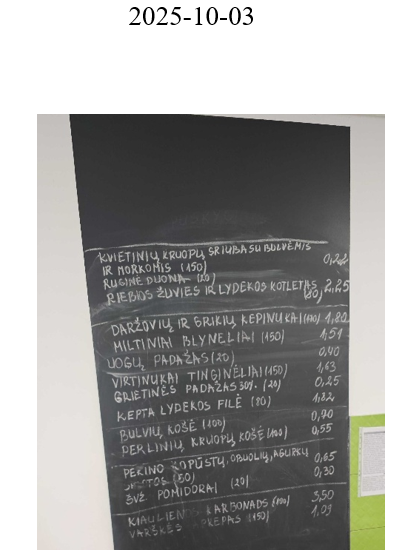 2025-10-03
KVIETINIŲ KRUOPŲ SRIUBA SU BULVĖMIS
IR MORKOMIS (150) 0,22
RUGINĖ DUONA (20)
RIEBIOS ŽUVIES IR LYDEKOS KOTLETAS (80) 2,25
DARŽOVIŲ IR GRIKIŲ KEPINUKAI (110) 1,80
MILTINIAI BLYNELIAI (150) 1,51
UOGŲ PADAŽAS (20) 0,40
VIRTINUKAI TINGINĖLIAI (150) 1,63
GRIETINĖS PADAŽAS 30%. (20) 0,25
KEPTA LYDEKOS FILĖ (80) 1,32
BULVIŲ KOŠĖ (100) 0,70
PERLINIŲ KRUOPŲ KOŠĖ (100) 0,55
PEKINO KOPŪSTŲ, OBUOLIŲ, AGURKŲ 0,65
(50) 0,30
ŠVŽ POMIDORAI (20)
KIAULIENOS KARBONADS (100) 3,50
VARŠKĖS APKEPAS (150) 1,09